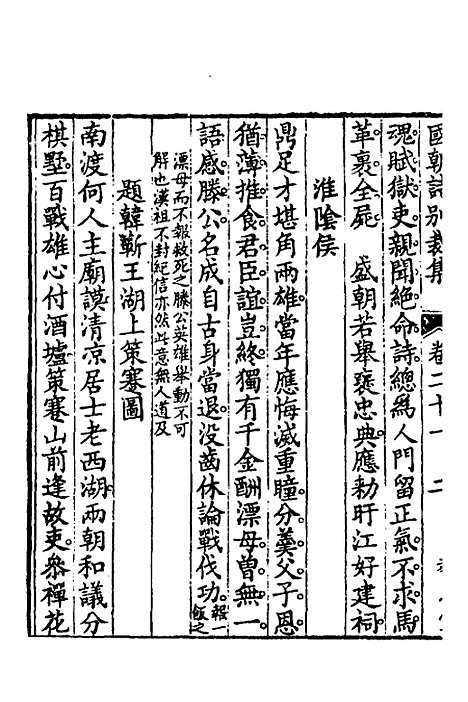 國朝詩別裁集 卷二十一 二
魂賦獄吏親聞絕命詩總為人門留正氣不求馬
革裹全屍 盛朝若舉褒忠典應勑盱江好建祠
淮陰侯
鼎足才堪角兩雄當年應悔滅重瞳分羹父子恩
猶薄推食君臣誼豈終獨有千金酬漂母曾無一
語感滕公名成自古身當退沒齒休論戰伐功報一飯之
漂母而不報救死之滕公英雄舉動不可
解也漢祖不封紀信亦然此意無人道及
題韓蘄王湖上策蹇圖
南渡何人主廟謨清涼居士老西湖兩朝和議分
棋墅百戰雄心付酒壚策蹇山前逢故吏參禪花